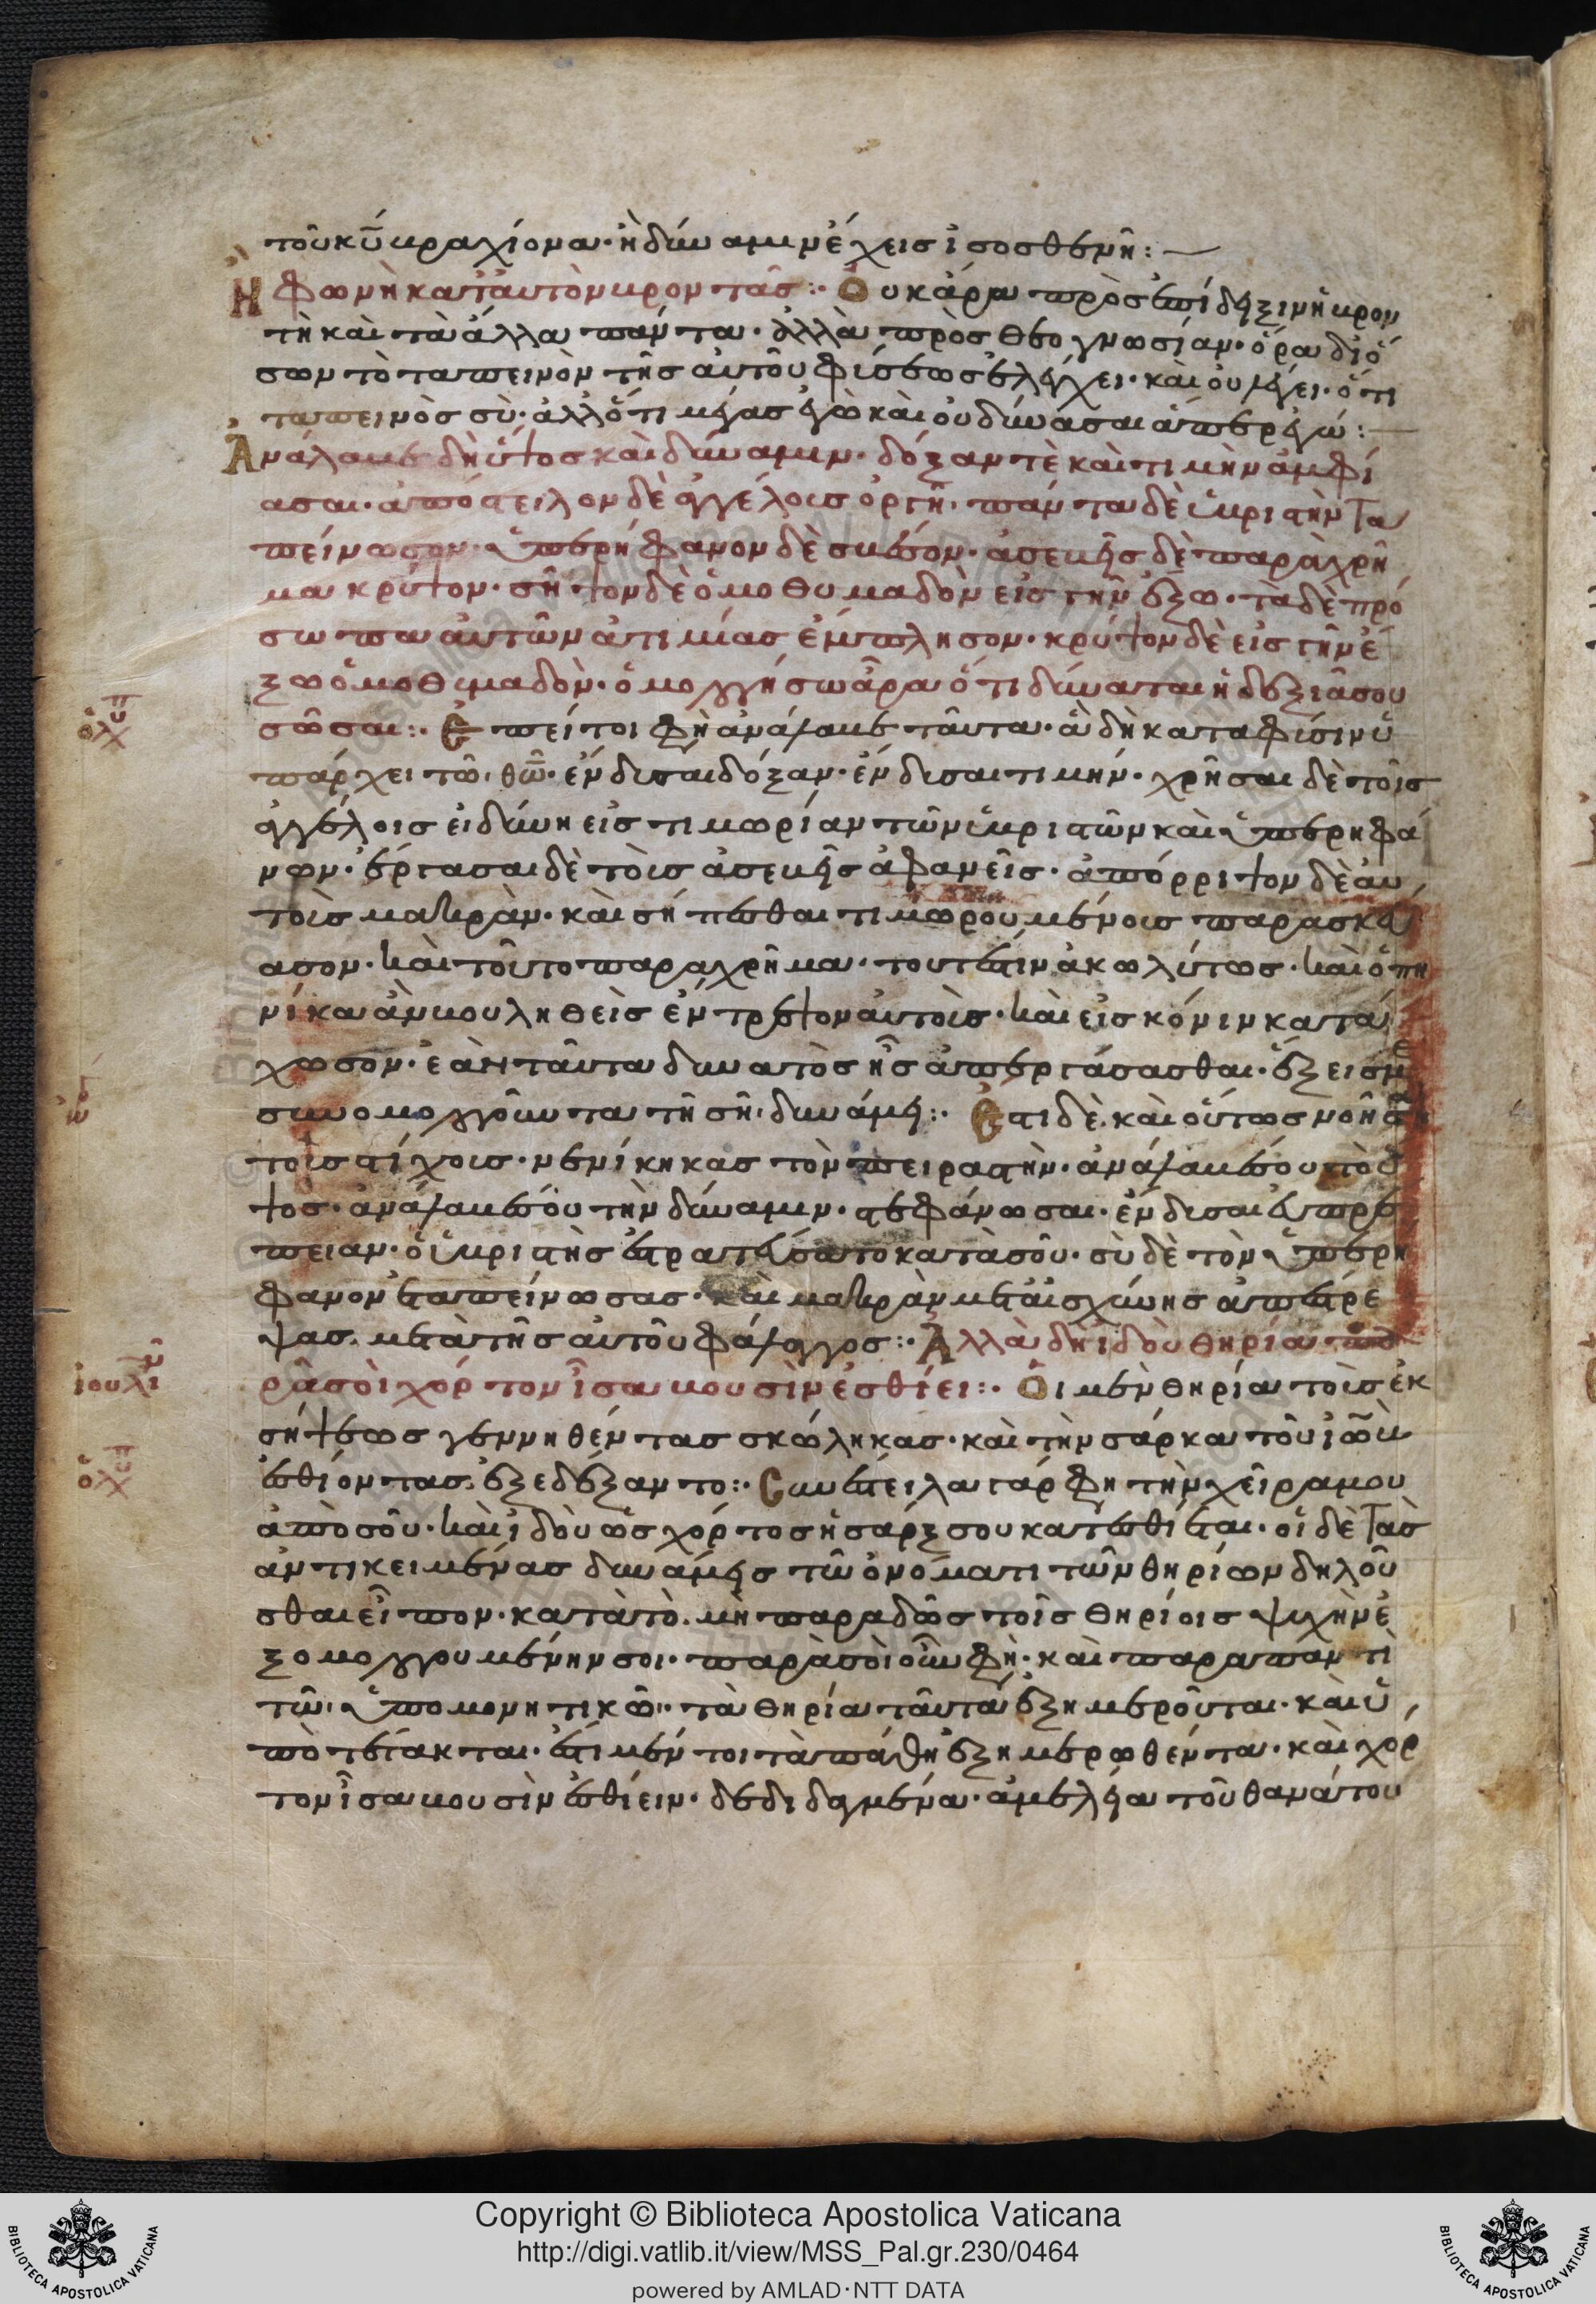 τοῦ κῦ βραχίονα· ἢ δύναμιν ἔχεις ἰσοσθενῆ:—
Ἢ φωνῇ κατ' αὐτὸν βροντᾶς:· Οὐκ ἄρα πρὸς ἐπίδειξιν ἡ βρον
τὴ καὶ τὰ ἄλλα πάντα· ἀλλὰ πρὸς θεογνωσίαν· ὅρα δι' ὅ
σων τὸ ταπεινὸν τῆς αὐτοῦ φύσεως ἐλέγχει· καὶ οὐ λέγει· ὅτι
ταπεινὸς σὺ· ἀλλ' ὅτι μέγας ἐγὼ καὶ οὐ δύνασαι ἅπερ ἐγώ:—
Ἀνάλαβε δὴ ὕψος καὶ δύναμιν· δόξαν τὲ καὶ τιμὴν ἀμφί
ασαι· ἀπόστειλον δὲ ἀγγέλοις ὀργῇ· πάντα δὲ ὑβριστὴν τα
πείνωσον· ὑπερήφανον δὲ σβέσον· ἀσεβεῖς δὲ παραχρῆ
μα κρύψον· σῆψον δὲ ὁμοθυμαδὸν εἰς γῆν ἔξω· τὰ δὲ πρό
σωπα αὐτῶν ἀτιμίας ἔμπλησον· κρύψον δὲ εἰς γῆν ἔ
ξω ὁμοθυμαδὸν· ὁμολογήσω ἄρα ὅτι δύναται ἡ δεξιά σου
σῶσαι:· Ἐπεί τοι φὴ ἀνάλαβε ταῦτα· ἃ δὴ κατὰ φύσιν ὑ
πάρχει τῷ θῶ· ἔνδυσαι δόξαν· ἔνδυσαι τιμήν· χρῆσαι δὲ τοῖς
ἀγγέλοις εἰ δύνῃ εἰς τιμωρίαν τῶν ὑβριστῶν καὶ ὑπερηφά
νων· ἔργασαι δὲ τοὺς ἀσεβεῖς ἀφανεῖς· ἀπόρριψον δὲ αὐ
τοὺς μακρὰν· καὶ σήπεσθαι τιμωρουμένοις παρασκεύ
ασον· καὶ τοῦτο παραχρῆμα· τουτέστιν ἀκωλύτως· καὶ ὁπη
νίκα ἂν βουληθεὶς ἔντρεψον αὐτοὺς· καὶ εἰς κόνιν κατά
χωσον· ἐὰν ταῦτα δυνατὸς ῇς ἀπεργάσασθαι· ἕξεις με
συνομολογοῦντα τῇ σῇ δυνάμει:· Ἔτι δὲ καὶ οὕτως νοήσῃ
τοὺς στίχους· νενίκηκας τὸν πειραστὴν· ἀνάλαβέ σου τὸ ὕ
ψος· ἀνάλαβέ σου τὴν δύναμιν· στεφάνωσαι· ἔνδυσαι εὐπρέ
πειαν· ὁ ὑβριστὴς ἐστρατεύσατο κατὰ σοῦ· σὺ δὲ τὸν ὑπερή
φανον ἐταπείνωσας· καὶ μακρὰν μετ' αἰσχύνης ἀπέστρε
ψας μετὰ τῆς αὐτοῦ φάλαγγος:· Ἀλλὰ δὴ ἰδοὺ θηρία πα
ρὰ σοὶ χόρτον ἴσα βουσὶν ἐσθίει:· Οἱ μὲν θηρία τοὺς ἐκ
σήψεως γεννηθέντας σκώληκας· καὶ τὴν σάρκα τοῦ ἰὼβ
ἐσθίοντας ἐξεδέξαντο:· Συνέστειλα γάρ φη τὴν χεῖρα μου
ἀπὸ σοῦ· καὶ ἰδοὺ ὡς χόρτος ἡ σάρξ σου κατεσθίεται· οἱ δὲ τὰς
ἀντικειμένας δυνάμεις τῷ ὀνόματι τῶν θηρίων δηλοῦ
σθαι εἶπον· κατὰ τὸ· μὴ παραδῷς τοῖς θηρίοις ψυχὴν ἐ
ξομολογουμένην σοι· παρὰ σοὶ οὖν φὴ· καὶ παρὰ παντὶ
τῷ ὑπομονητικῷ· τὰ θηρία ταῦτα ἐξημεροῦται· καὶ ὑ
ποτέτακται· ἔτι μέν τοι τὰ πάθη ἐξημερωθέντα· καὶ χόρ
τον ἴσα βουσὶν ἐσθίειν· δεδιδαγμένα· ἀμελεία τοῦ θανάτου
ὀλυπ
ἰουλιν
ὀλυπ
Copyright © Biblioteca Apostolica Vaticana
http://digi.vatlib.it/view/MSS_Pal.gr.230/0464
powered by AMLAD·NTT DATA
BIBLIOTECA APOSTOLICA VATICANA
BIBLIOTECA APOSTOLICA VATICANA